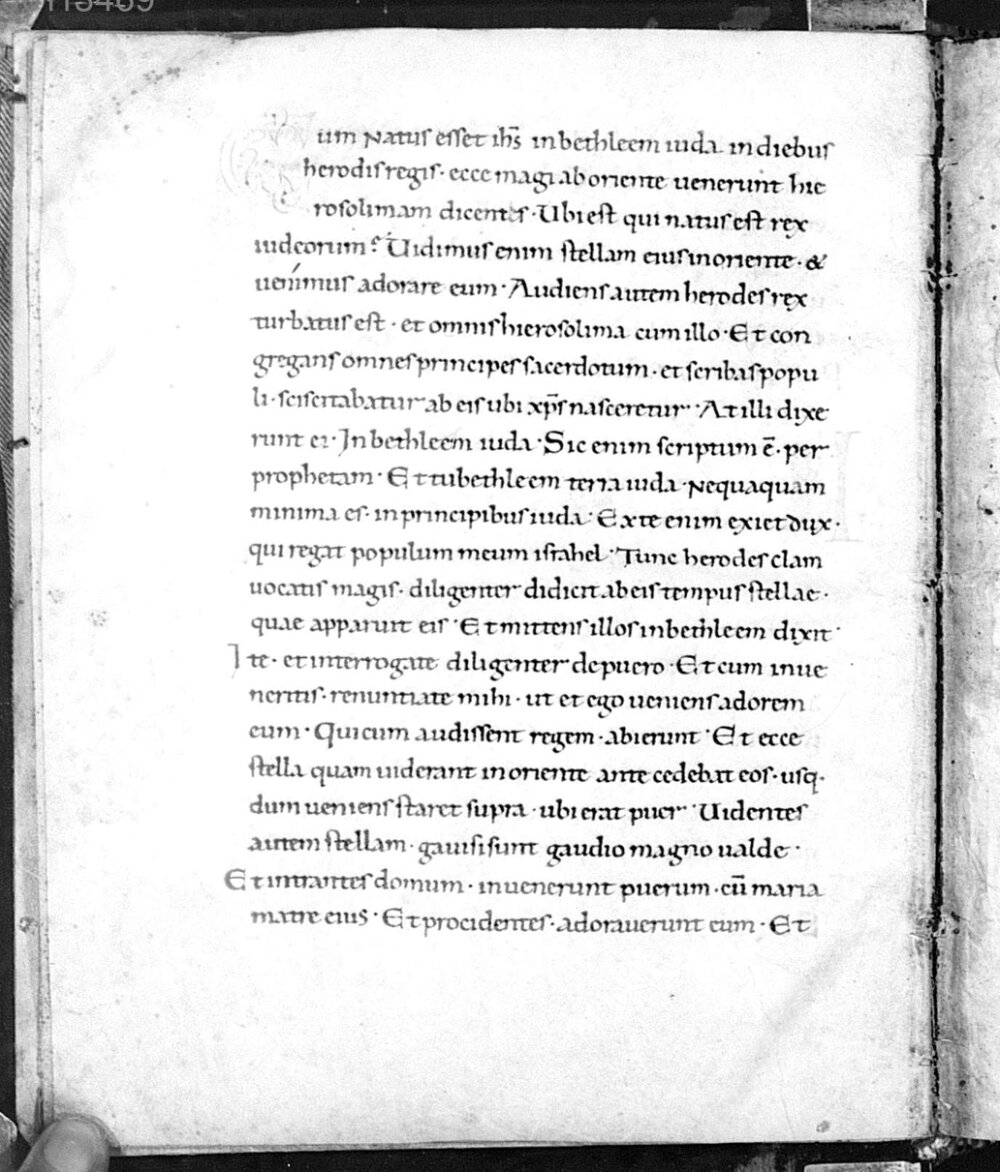 um Natus esset ihs̄ in bethleem iuda in diebus
herodis regis · ecce magi ab oriente uenerunt hie
rosolimam dicentes · Ubi est qui natus est rex
iudeorum? Uidimus enim stellam eius in oriente · &
uenimus adorare eum · Audiens autem herodes rex
turbatus est · et omnis hierosolima cum illo · Et con
gregans omnes principes sacerdotum · et scribas popu
li · sciscitabatur ab eis ubi xp̄s nasceretur · At illi dixe
runt ei · In bethleem iuda · Sic enim scriptum ē · per
prophetam · Et tu bethleem terra iuda · Nequaquam
minima es · in principibus iuda · Ex te enim exiet dux ·
qui regat populum meum israhel · Tunc herodes clam
uocatis magis · diligenter didicit ab eis tempus stellae ·
quae apparuit eis · Et mittens illos in bethleem dixit ·
Ite · et interrogate diligenter de puero · Et cum inue
neritis · renuntiate mihi · ut et ego ueniens adorem
eum · Qui cum audissent regem · abierunt · Et ecce
stella quam uiderant in oriente ante cedebat eos · usq·
dum ueniens staret supra · ubi erat puer · Uidentes
autem stellam · gauisi sunt gaudio magno ualde ·
Et intrantes domum · inuenerunt puerum · cū maria
matre eius · Et procidentes · adorauerunt eum · Et